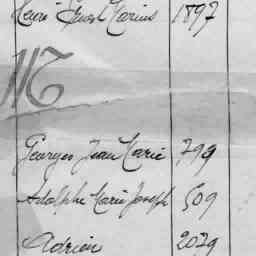 Henri Joseph Marius 1897
M
Georges Jean Marie 799
Adolphe Marie Joseph 509
Adrien 2029